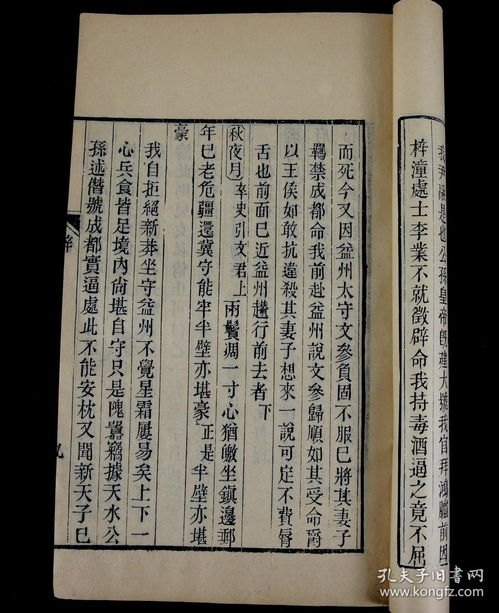 是也公孫皇帝既建大號我官拜鴻臚前因
梓潼處士李業不就徵辟命我持毒酒逼之竟不屈
而死今又因益州太守文參負固不服已將其妻子
羈禁成都命我前赴益州說文參歸順如其受命爵
以王侯如敢抗違殺其妻子想來一說可定不費脣
舌也前面已近益州趲行前去者下
秋夜月率史引文君上兩鬢凋一寸心猶皦坐鎮邊郵
年已老危疆還冀守能牢半壁亦堪豪正是半壁亦堪
豪
我自拒絕新莽坐守益州不覺星霜屢易矣上下一
心兵食皆足境內尚堪自守只是隗囂竊據天水公
孫述僭號成都實逼處此不能安枕又聞新天子已
九
孔夫子旧书网
www.kongfz.com